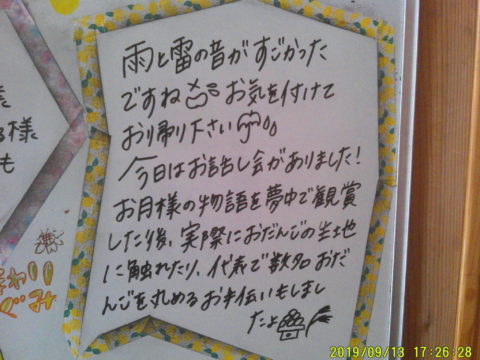 雨と雷の音がすごかった
ですね お気を付けて
お帰り下さい
今日はお話し会がありました!
お月様の物語を夢中で観賞
した後、実際におだんごの生地
に触れたり、代表で数名おだ
んごを丸めるお手伝いもしまし
たよ
様
も
2019/09/13 17:26:28